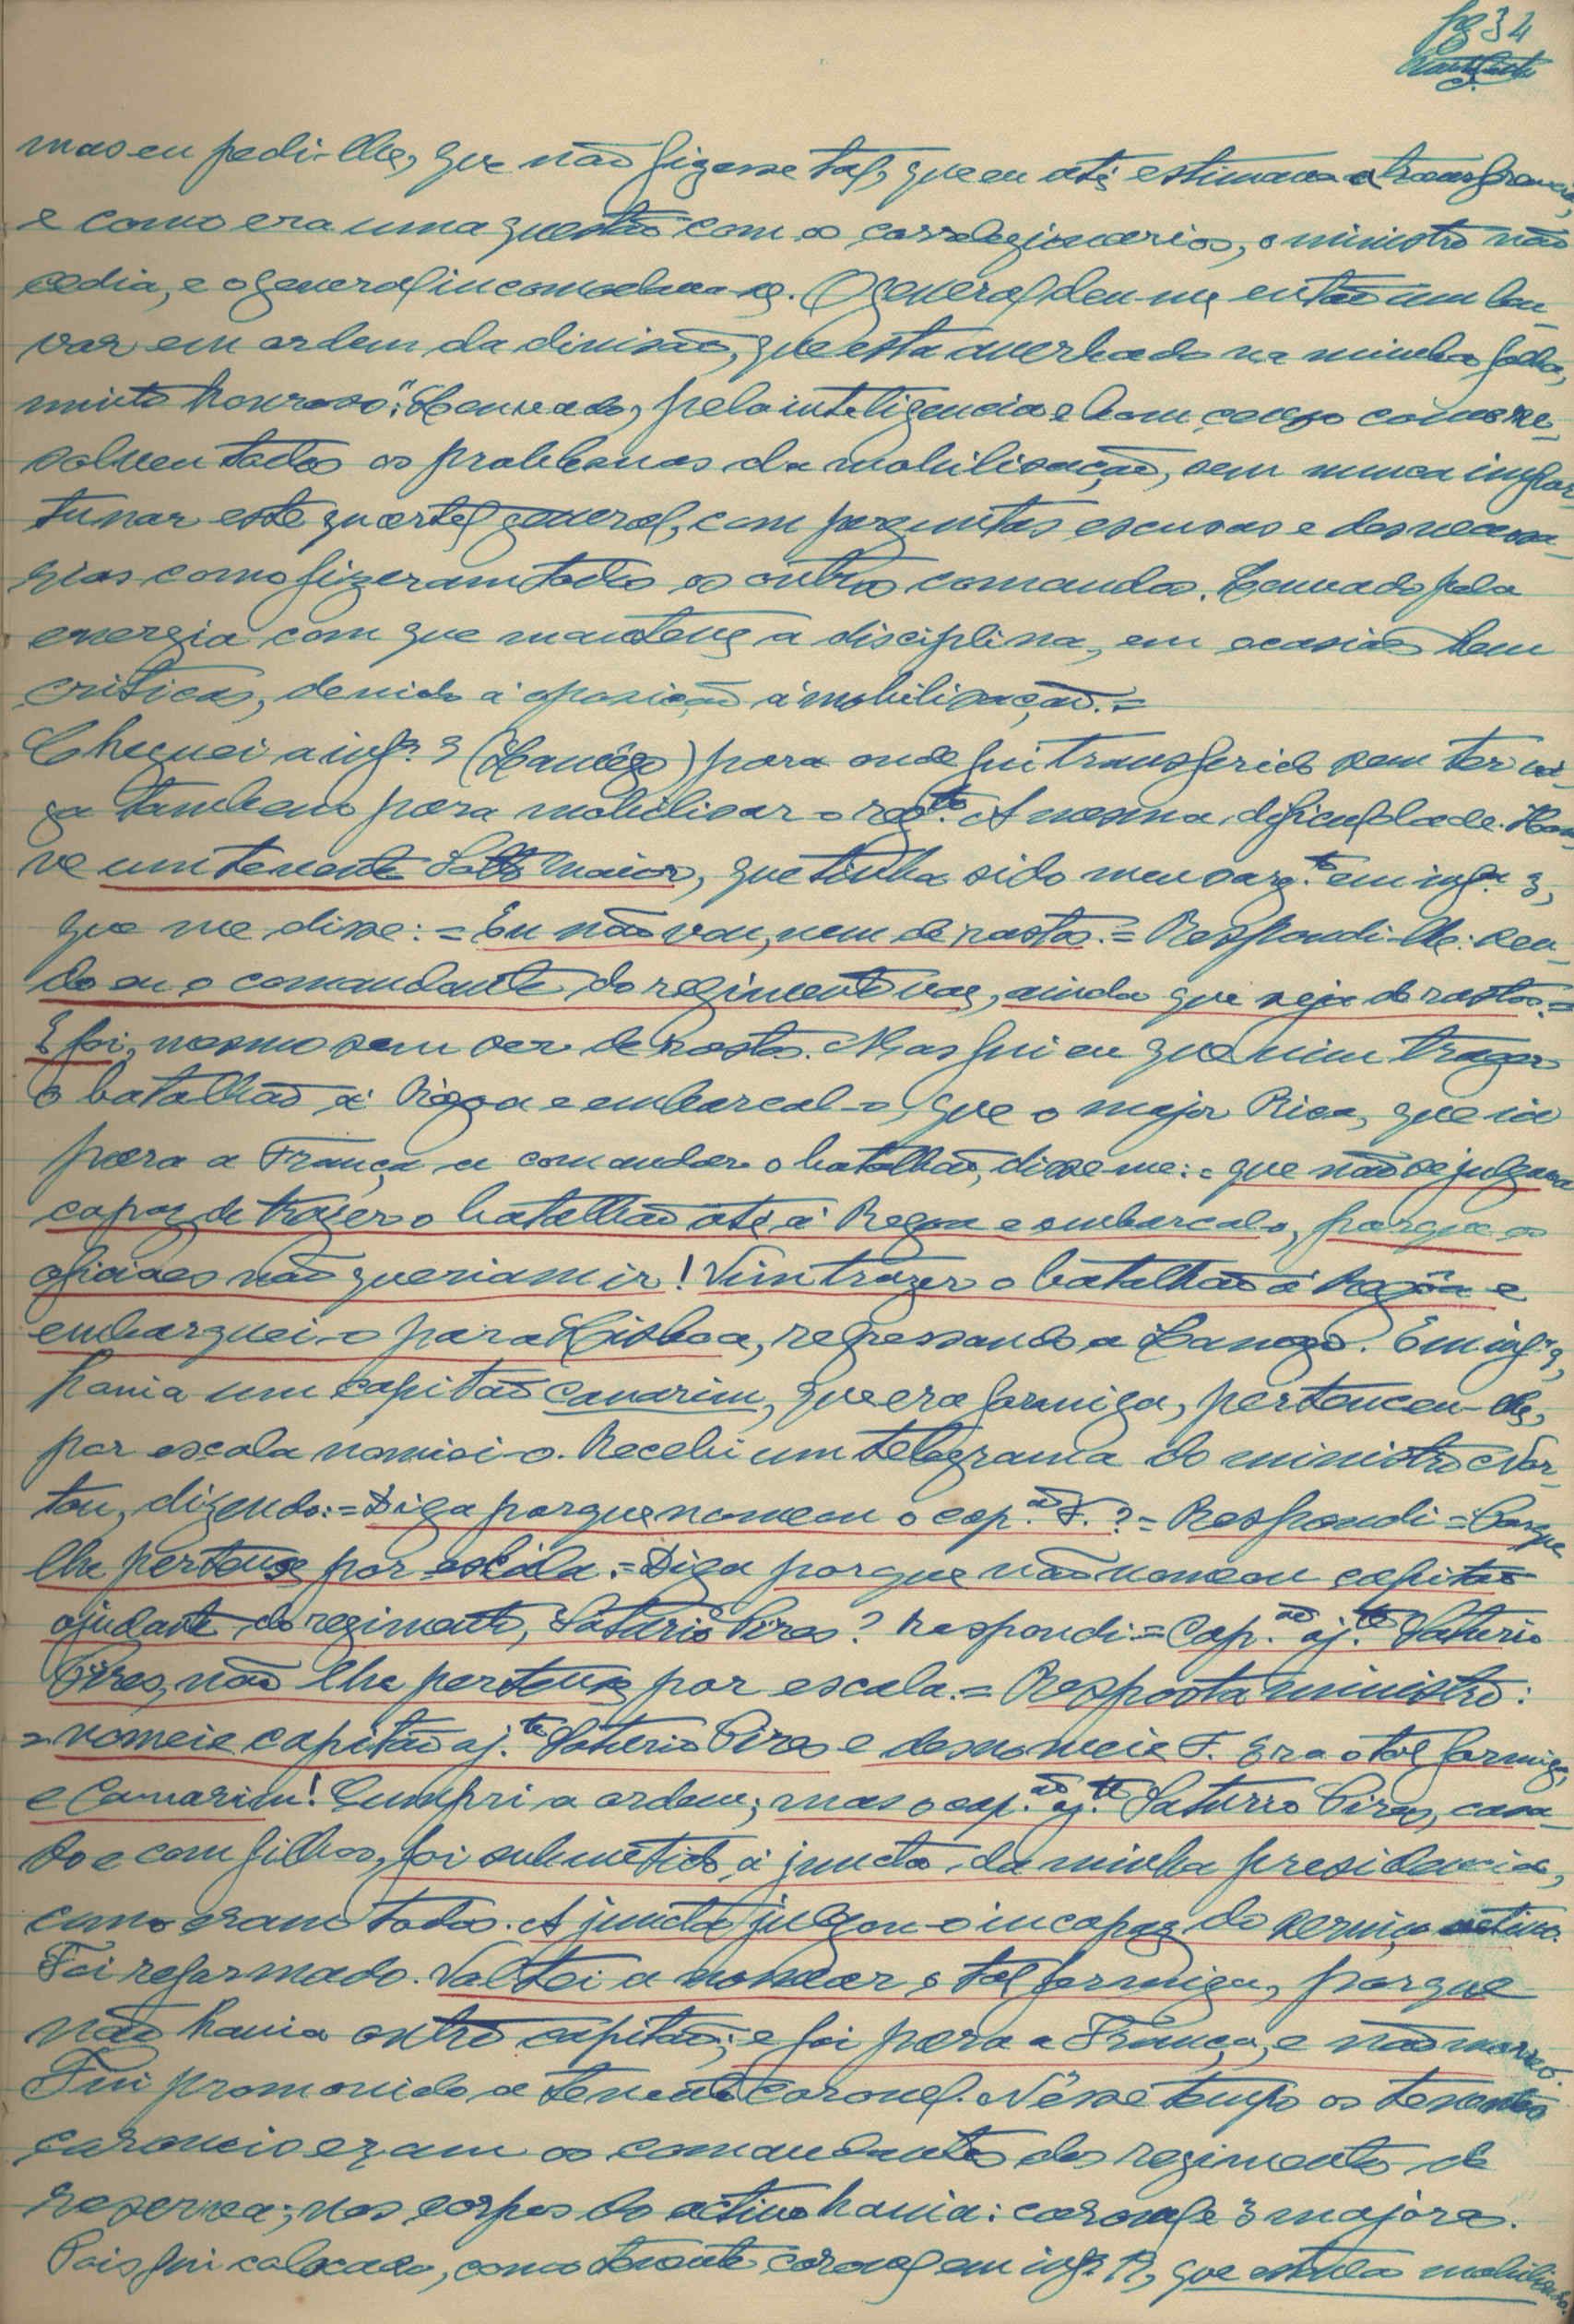 pg 34
mas eu pedi-lhe, que não fizesse tal, que eu até estimava a transferencia,
e como era uma questão com os correlegionarios, o ministro não
cedia, e o general incomodava-se. O general deu-me então um lou-
vor em ordem da divisão, que está averbado na minha folha,
muito honroso: "Louvado, pela inteligencia e bom censo como re-
solveu todos os problemas da mobilisação, sem nunca impor-
tunar este quartel general, com perguntas escusas e desnecessa-
rias como fizeram todos os outros comandos. Louvado pela
energia com que manteve a disciplina, em ocasiões bem
criticas, devido á oposição á mobilisação.=
Cheguei a infª. 9 (Lamêgo) para onde fui transferido sem ter va-
ga tambem para mobilisar o regto. A mesma dificuldade. Hou-
ve um tenente Souto Maior, que tinha sido meu sargto em infª 9,
que me disse: = Eu não vou, nem de rastos.= Respondi-lhe: Sen-
do eu o comandante do regimento vae, ainda que seja de rastos.=
E foi, mesmo sem ser de rastos. Mas fui eu que vim trazer
o batalhão á Régoa e embarcal-o, que o major Rica, que ia
para a França a comandar o batalhão, disse-me: = que não se julgava
capaz de trazer o batalhão até á Regoa e embarcalo, porque os
oficiaes não queriam ir! Vim trazer o batalhão á Regôa e
embarquei-o para Lisboa, regressando a Lamego. Em infª 9,
havia um capitão canarim, que era formiga, pertenceu-lhe,
por escala nomiei-o. Recebi um telegrama do ministro Nor-
ton, dizendo: = Diga porque nomeou o cap.ão F. ? = Respondi = Porque
lhe pertence por escala. = Diga porque não nomeou capitão
ajudante do regimento, Saturio Pires? Respondi: = Cap.ão aj.te Saturio
Pires, não lhe pertence por escala.= Resposta ministro:
= nomeie capitão aj.te Saturio Pires e desnomeie F. Era o tal formiga,
e Canarim! Cumpri a ordem; mas o cap.ão aj.te Saturio Pires, casa-
do e com filhos, foi submetido á juncta da minha presidencia,
como eram todos. A juncta julgou-o incapaz do serviço activo.
Foi reformado. Voltei a nomear o tal formiga, porque
não havia outro capitão; e foi para a França, e não morreo.
Fui promovido a tenente coronel. Nésse tempo os tenentes
coroneis eram os comandantes dos regimentos de
reserva; nos corpos do activo havia: coronel e 3 majores.
Pois fui colocado, como tenente coronel em infª. que estava mobilisado.